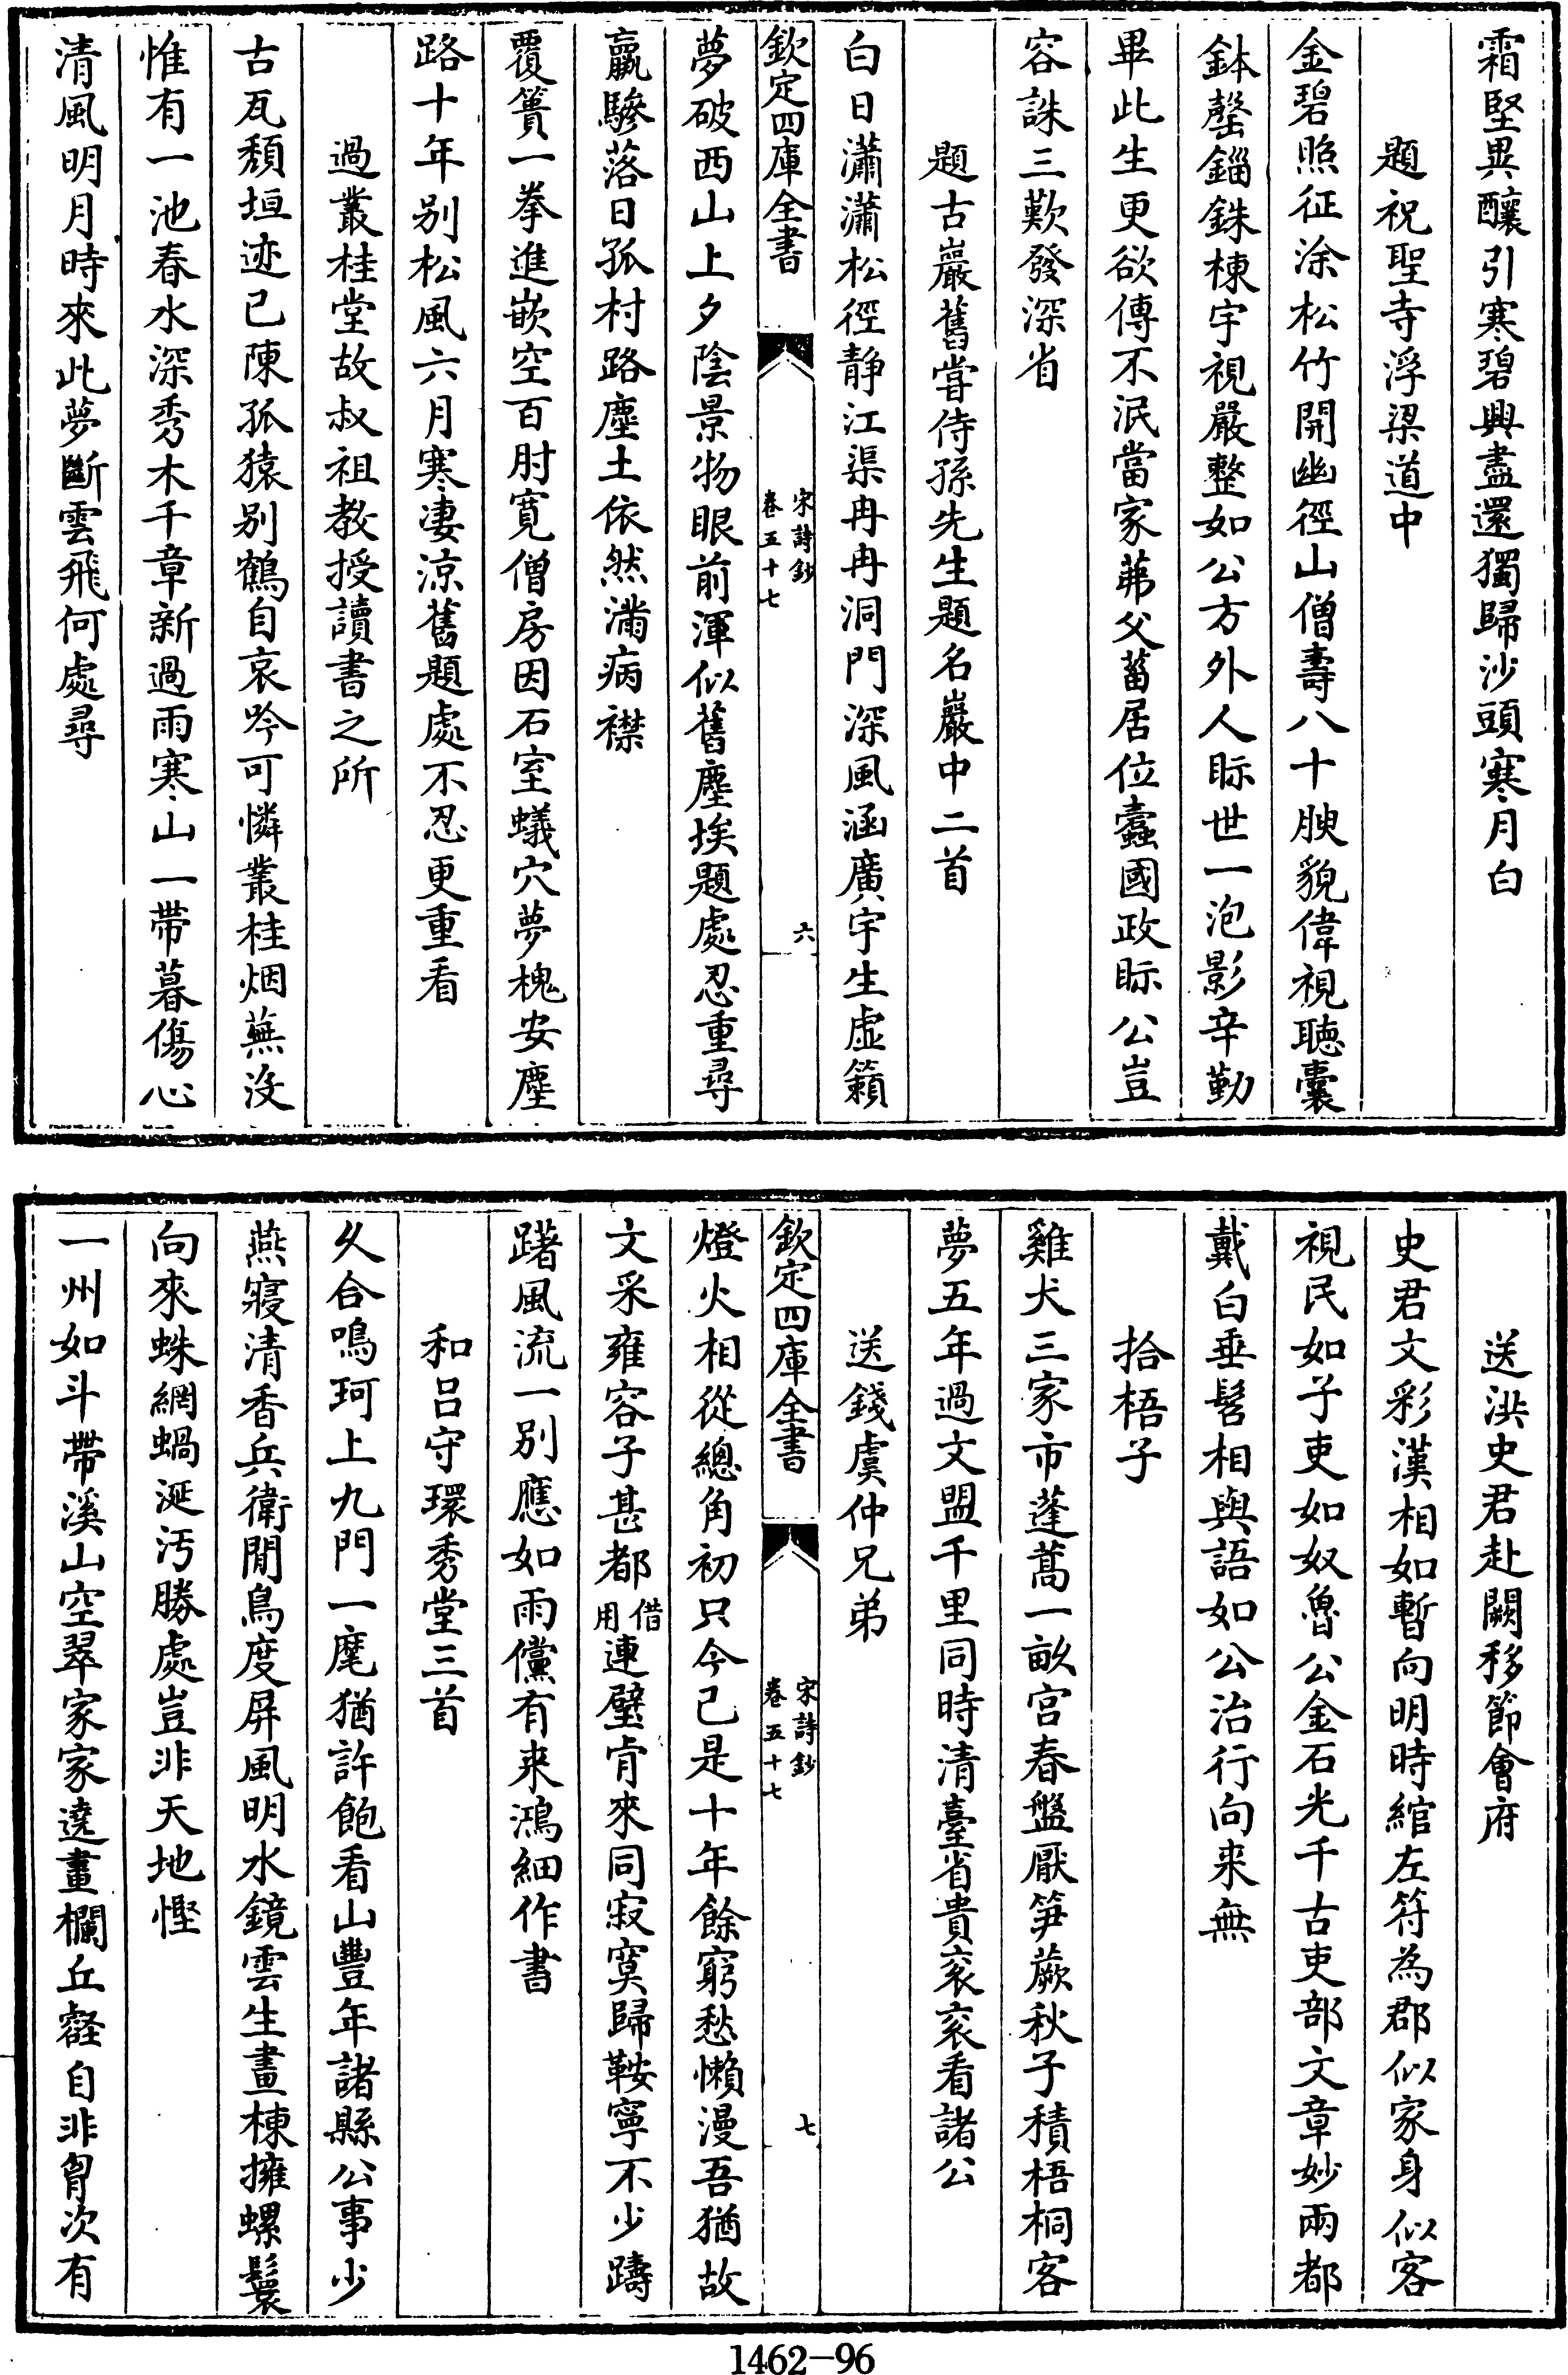 霜堅異釀引寒碧興盡還獨歸沙頭寒月白
題祝聖寺浮梁道中
金碧照征涂松竹開幽徑山僧壽八十腴貌偉視聽囊
鉢罄錙銖棟宇視嚴整如公方外人眎世一泡影辛勤
畢此生更欲傳不泯當家苐父菑居位蠹國政眎公豈
容誅三歎發深省
題古巖舊嘗侍孫先生題名巖中二首
白日瀟瀟松徑静江渠冉冉洞門深風涵廣宇生虛籟
欽定四庫全書
宋詩鈔
卷五十七
六
夢破西山上夕陰景物眼前渾似舊塵埃題處忍重尋
羸驂落日孤村路塵土依然滿病襟
覆簣一拳進嵌空百肘寛僧房因石室蟻穴夢槐安塵
路十年别松風六月寒凄涼舊題處不忍更重看
過叢桂堂故叔祖教授讀書之所
古瓦頽垣迹已陳孤猿别鶴自哀吟可憐叢桂烟蕪沒
惟有一池春水深秀木千章新過雨寒山一帶暮傷心
清風明月時來此夢斷雲飛何處尋
送洪史君赴闕移節會府
史君文彩漢相如暫向明時綰左符為郡似家身似客
視民如子吏如奴魯公金石光千古吏部文章妙兩都
戴白垂髫相與語如公治行向来無
拾梧子
雞犬三家市蓬蒿一畝宫春盤厭笋蕨秋子積梧桐客
夢五年過文盟千里同時清臺省貴衮衮看諸公
送錢虞仲兄弟
欽定四庫全書
宋詩鈔
卷五十七
七
燈火相從總角初只今已是十年餘窮愁懶漫吾猶故
文采雍容子甚都借用連璧肯來同寂寞歸鞍寧不少躊
躇風流一别應如雨儻有来鴻細作書
和吕守環秀堂三首
久合鳴珂上九門一麾猶許飽看山豐年諸縣公事少
燕寢清香兵衛閒鳥度屏風明水鏡雲生畫棟擁螺鬟
向來蛛網蝸涎汚勝處豈非天地慳
一州如斗帶溪山空翠家家遶畫欄丘壑自非胷次有
1462-96